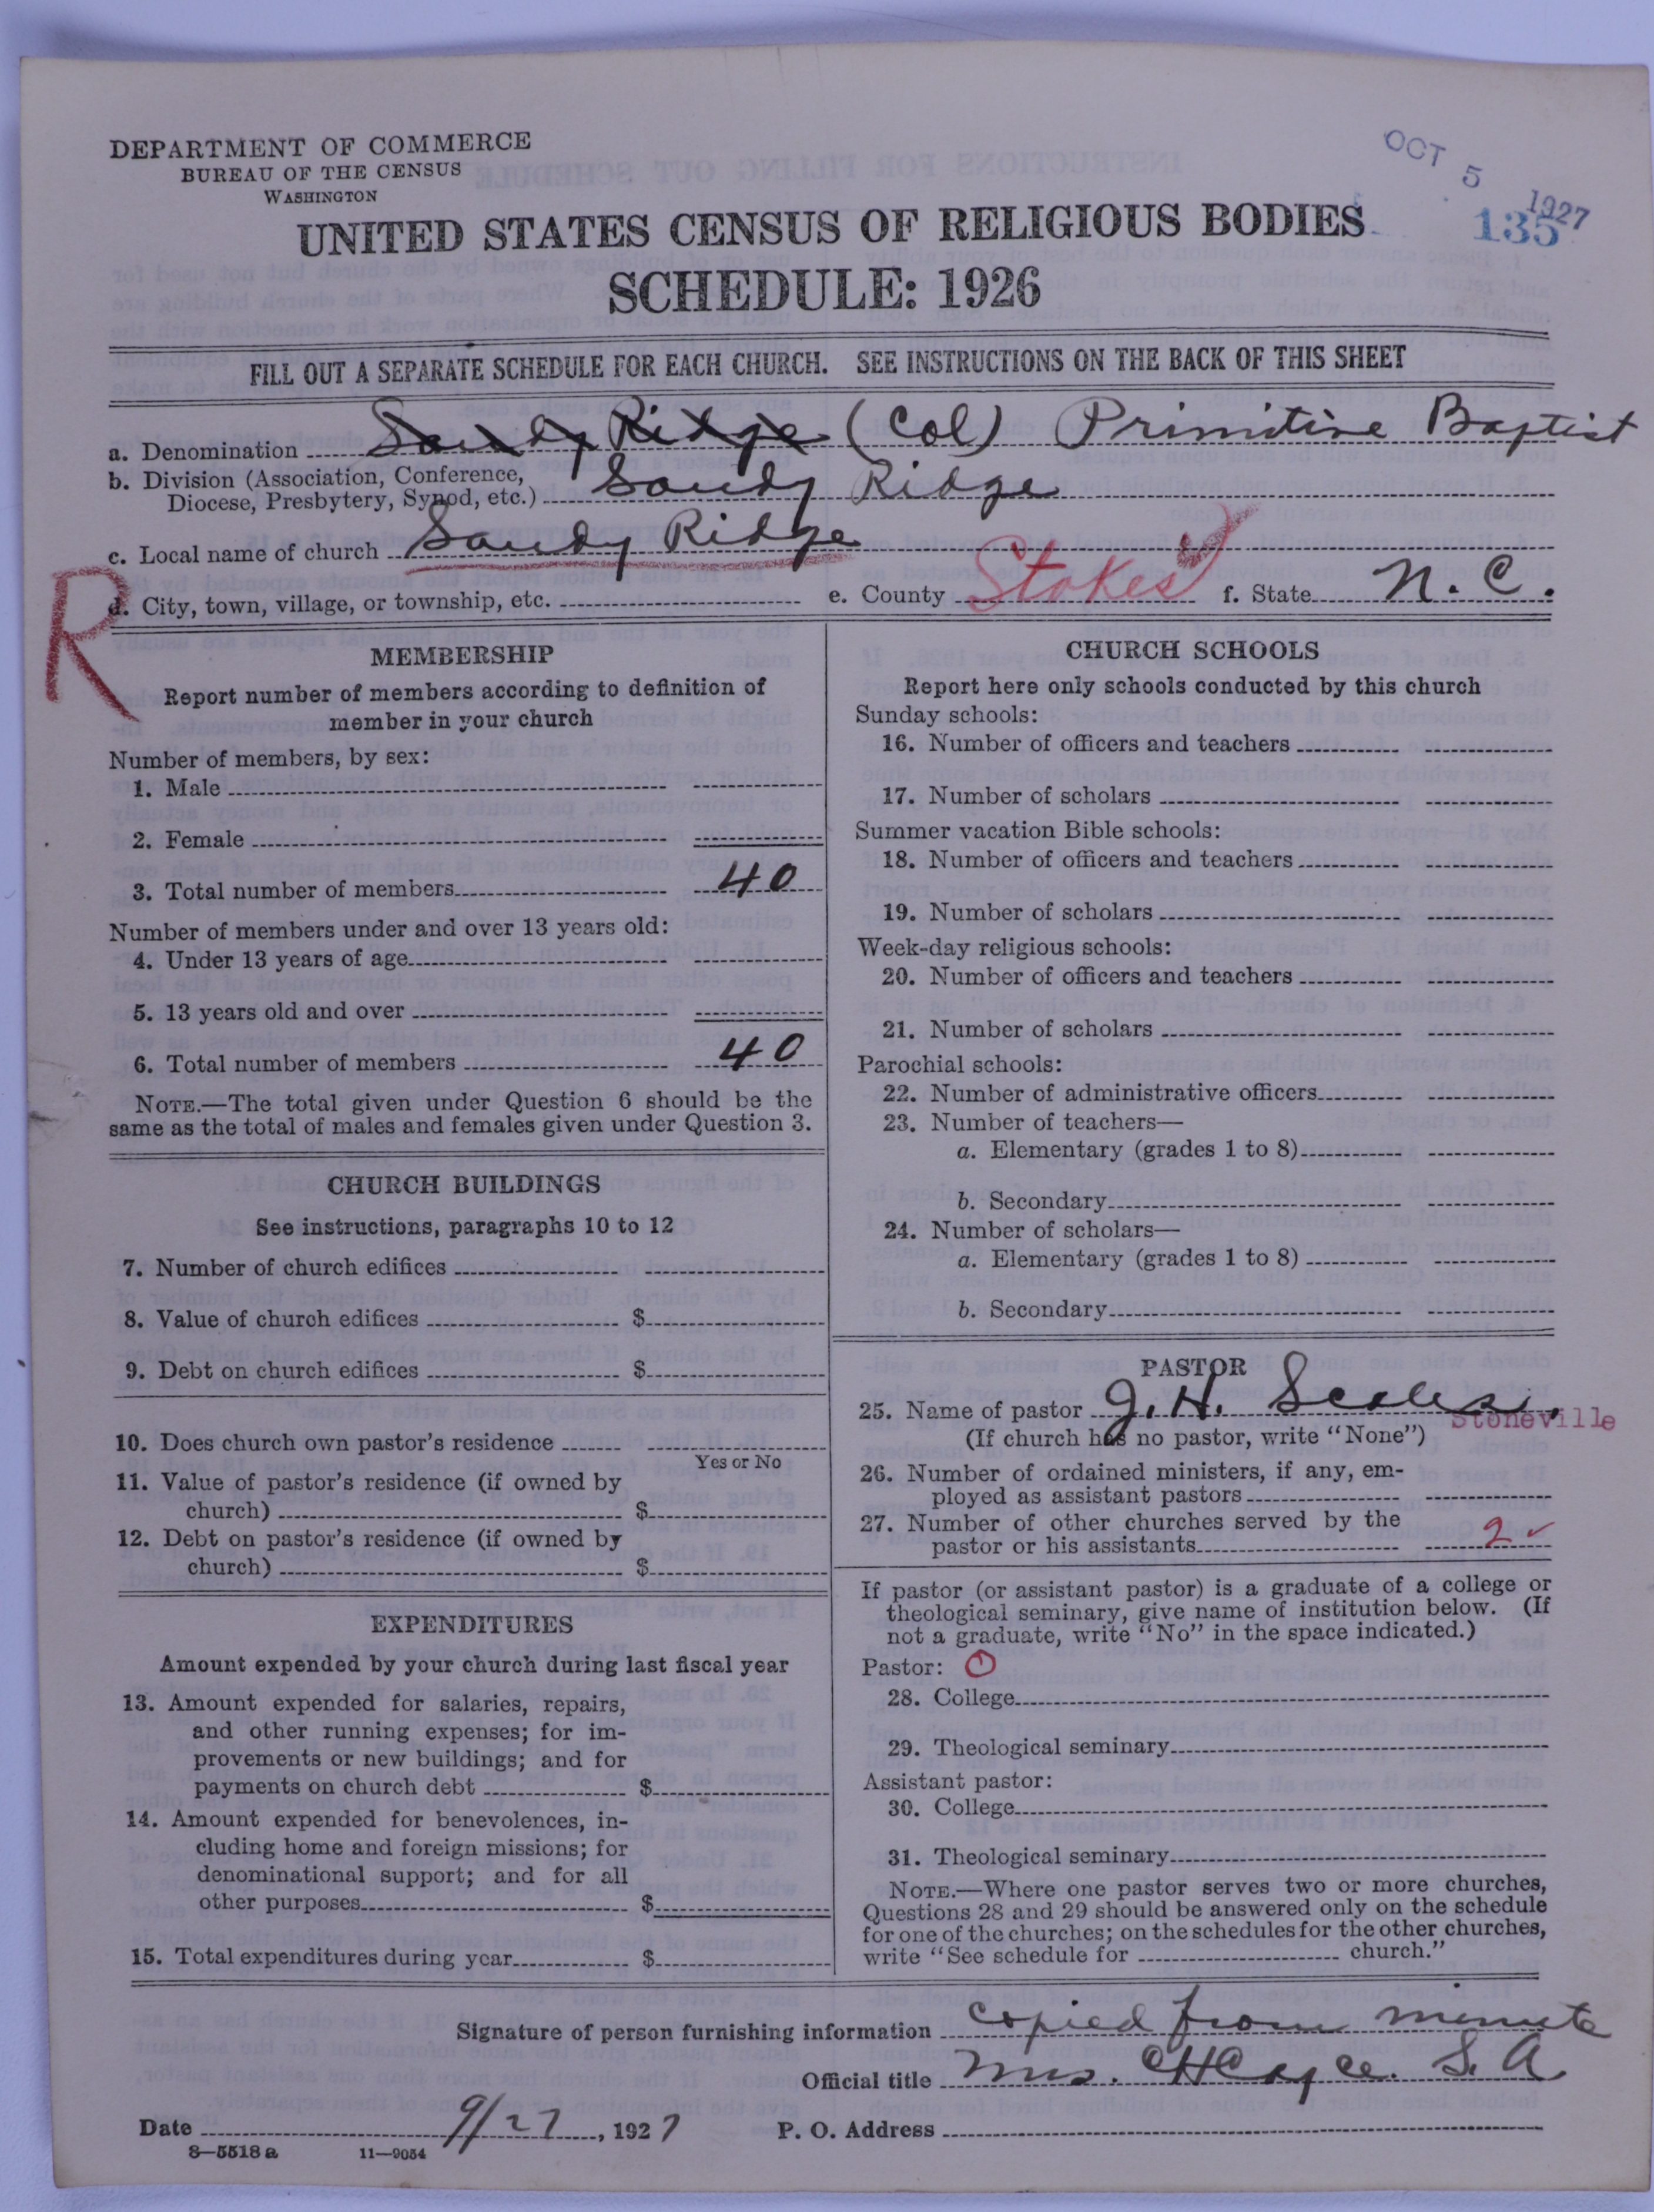 DEPARTMENT OF COMMERCE
BUREAU OF THE CENSUS
WASHINGTON
OCT 5 1927
135
UNITED STATES CENSUS OF RELIGIOUS BODIES
SCHEDULE: 1926
FILL OUT A SEPARATE SCHEDULE FOR EACH CHURCH. SEE INSTRUCTIONS ON THE BACK OF THIS SHEET
a. Denomination Sandy Ridge (Col) Primitive Baptist
b. Division (Association, Conference,
Diocese, Presbytery, Synod, etc.) Sandy Ridge
c. Local name of church Sandy Ridge
R
d. City, town, village, or township, etc. e. County Stokes f. State N.C.
MEMBERSHIP
Report number of members according to definition of
member in your church
Number of members, by sex:
1. Male
2. Female
3. Total number of members 40
Number of members under and over 13 years old:
4. Under 13 years of age
5. 13 years old and over
6. Total number of members 40
NOTE.—The total given under Question 6 should be the
same as the total of males and females given under Question 3.
CHURCH BUILDINGS
See instructions, paragraphs 10 to 12
7. Number of church edifices
8. Value of church edifices $
9. Debt on church edifices $
10. Does church own pastor's residence
Yes or No
11. Value of pastor's residence (if owned by
church) $
12. Debt on pastor's residence (if owned by
church) $
EXPENDITURES
Amount expended by your church during last fiscal year
13. Amount expended for salaries, repairs,
and other running expenses; for im-
provements or new buildings; and for
payments on church debt $
14. Amount expended for benevolences, in-
cluding home and foreign missions; for
denominational support; and for all
other purposes $
15. Total expenditures during year $
CHURCH SCHOOLS
Report here only schools conducted by this church
Sunday schools:
16. Number of officers and teachers
17. Number of scholars
Summer vacation Bible schools:
18. Number of officers and teachers
19. Number of scholars
Week-day religious schools:
20. Number of officers and teachers
21. Number of scholars
Parochial schools:
22. Number of administrative officers
23. Number of teachers—
a. Elementary (grades 1 to 8)
b. Secondary
24. Number of scholars—
a. Elementary (grades 1 to 8)
b. Secondary
PASTOR
25. Name of pastor J. H. Scales,
Stoneville
(If church has no pastor, write "None")
26. Number of ordained ministers, if any, em-
ployed as assistant pastors
27. Number of other churches served by the
pastor or his assistants 2 ✓
If pastor (or assistant pastor) is a graduate of a college or
theological seminary, give name of institution below. (If
not a graduate, write "No" in the space indicated.)
Pastor:
28. College
29. Theological seminary
Assistant pastor:
30. College
31. Theological seminary
NOTE.—Where one pastor serves two or more churches,
Questions 28 and 29 should be answered only on the schedule
for one of the churches; on the schedules for the other churches,
write "See schedule for church."
Signature of person furnishing information copied from minute
Official title Mrs. C H Cayce. S. A
Date 9/27, 1927 P. O. Address
8—5518 a 11—9054